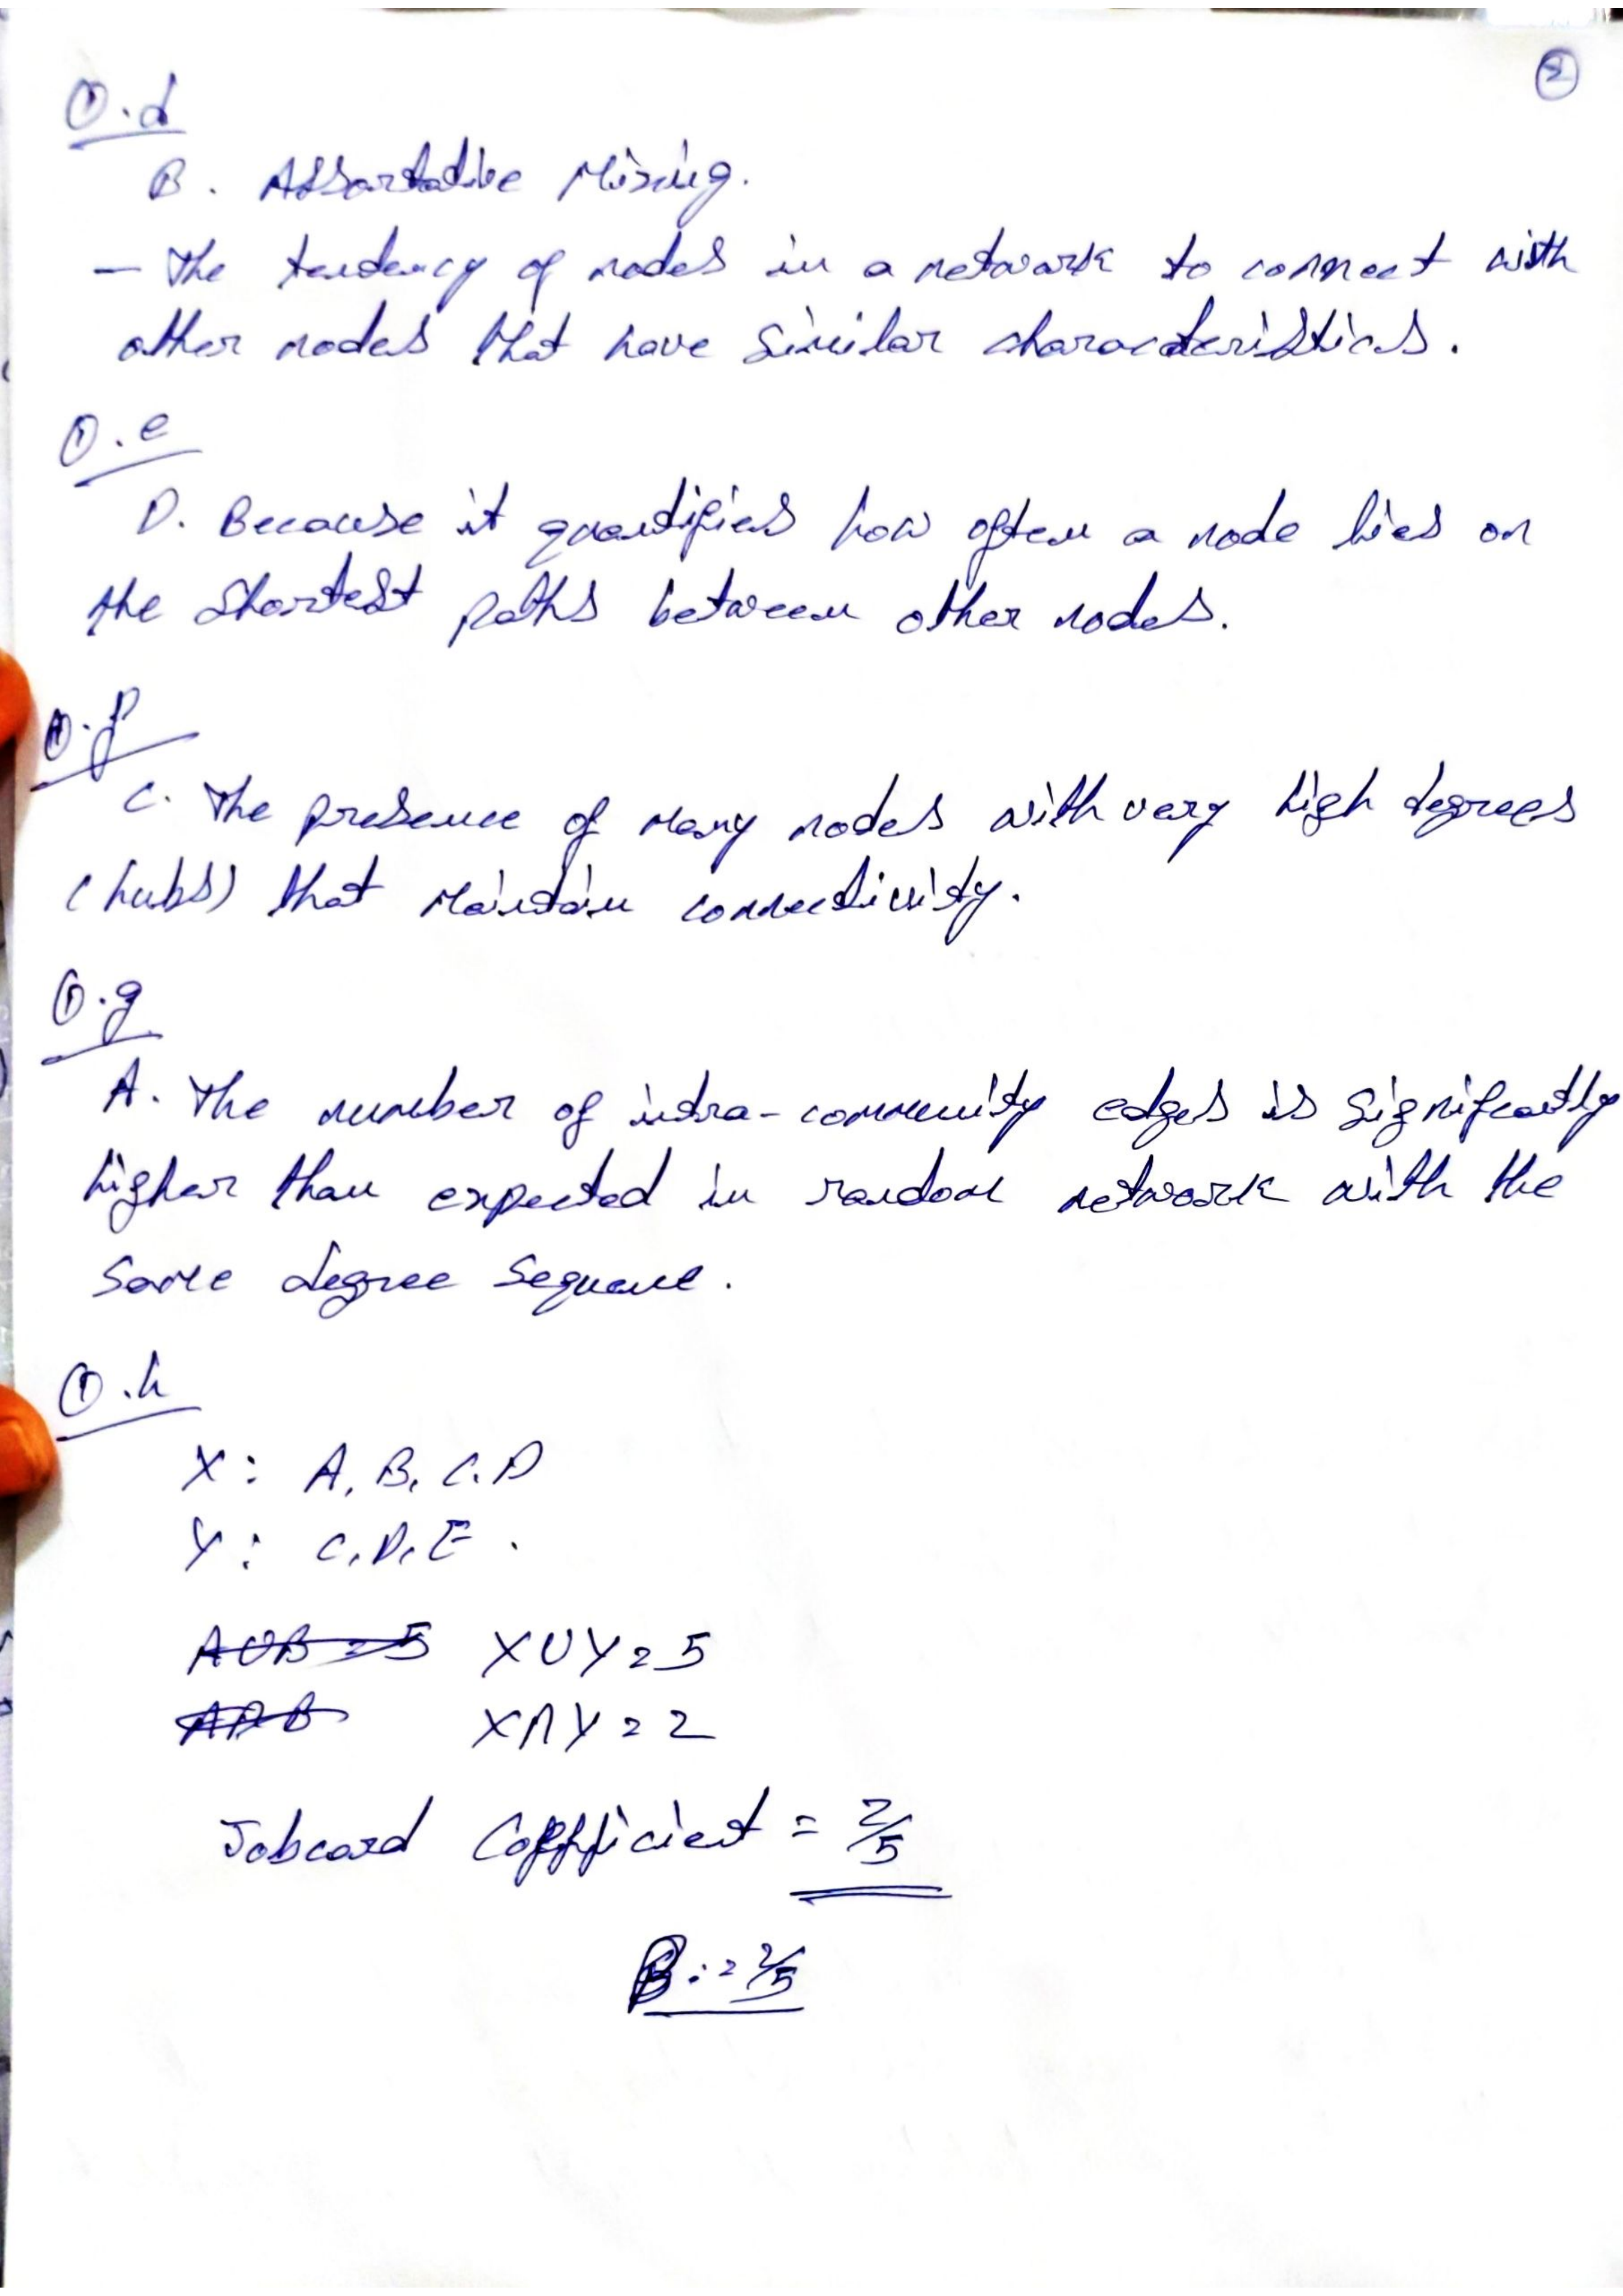 ②
①.d
B. Assortative Mixing.
– The tendency of nodes in a network to connect with
other nodes that have similar characteristics.
①.e
D. Because it quantifies how often a node lies on
the shortest paths between other nodes.
①.f
C. The presence of many nodes with very high degrees
(hubs) that maintain connectivity.
①.g
A. The number of intra-community edges is significantly
higher than expected in random network with the
same degree sequence.
①.h
X: A, B, C, D
Y: C, D, E.
A∪B = 5 X∪Y = 5
A∩B X∩Y = 2
Jabcard Coefficient = 2/5
B. = 2/5